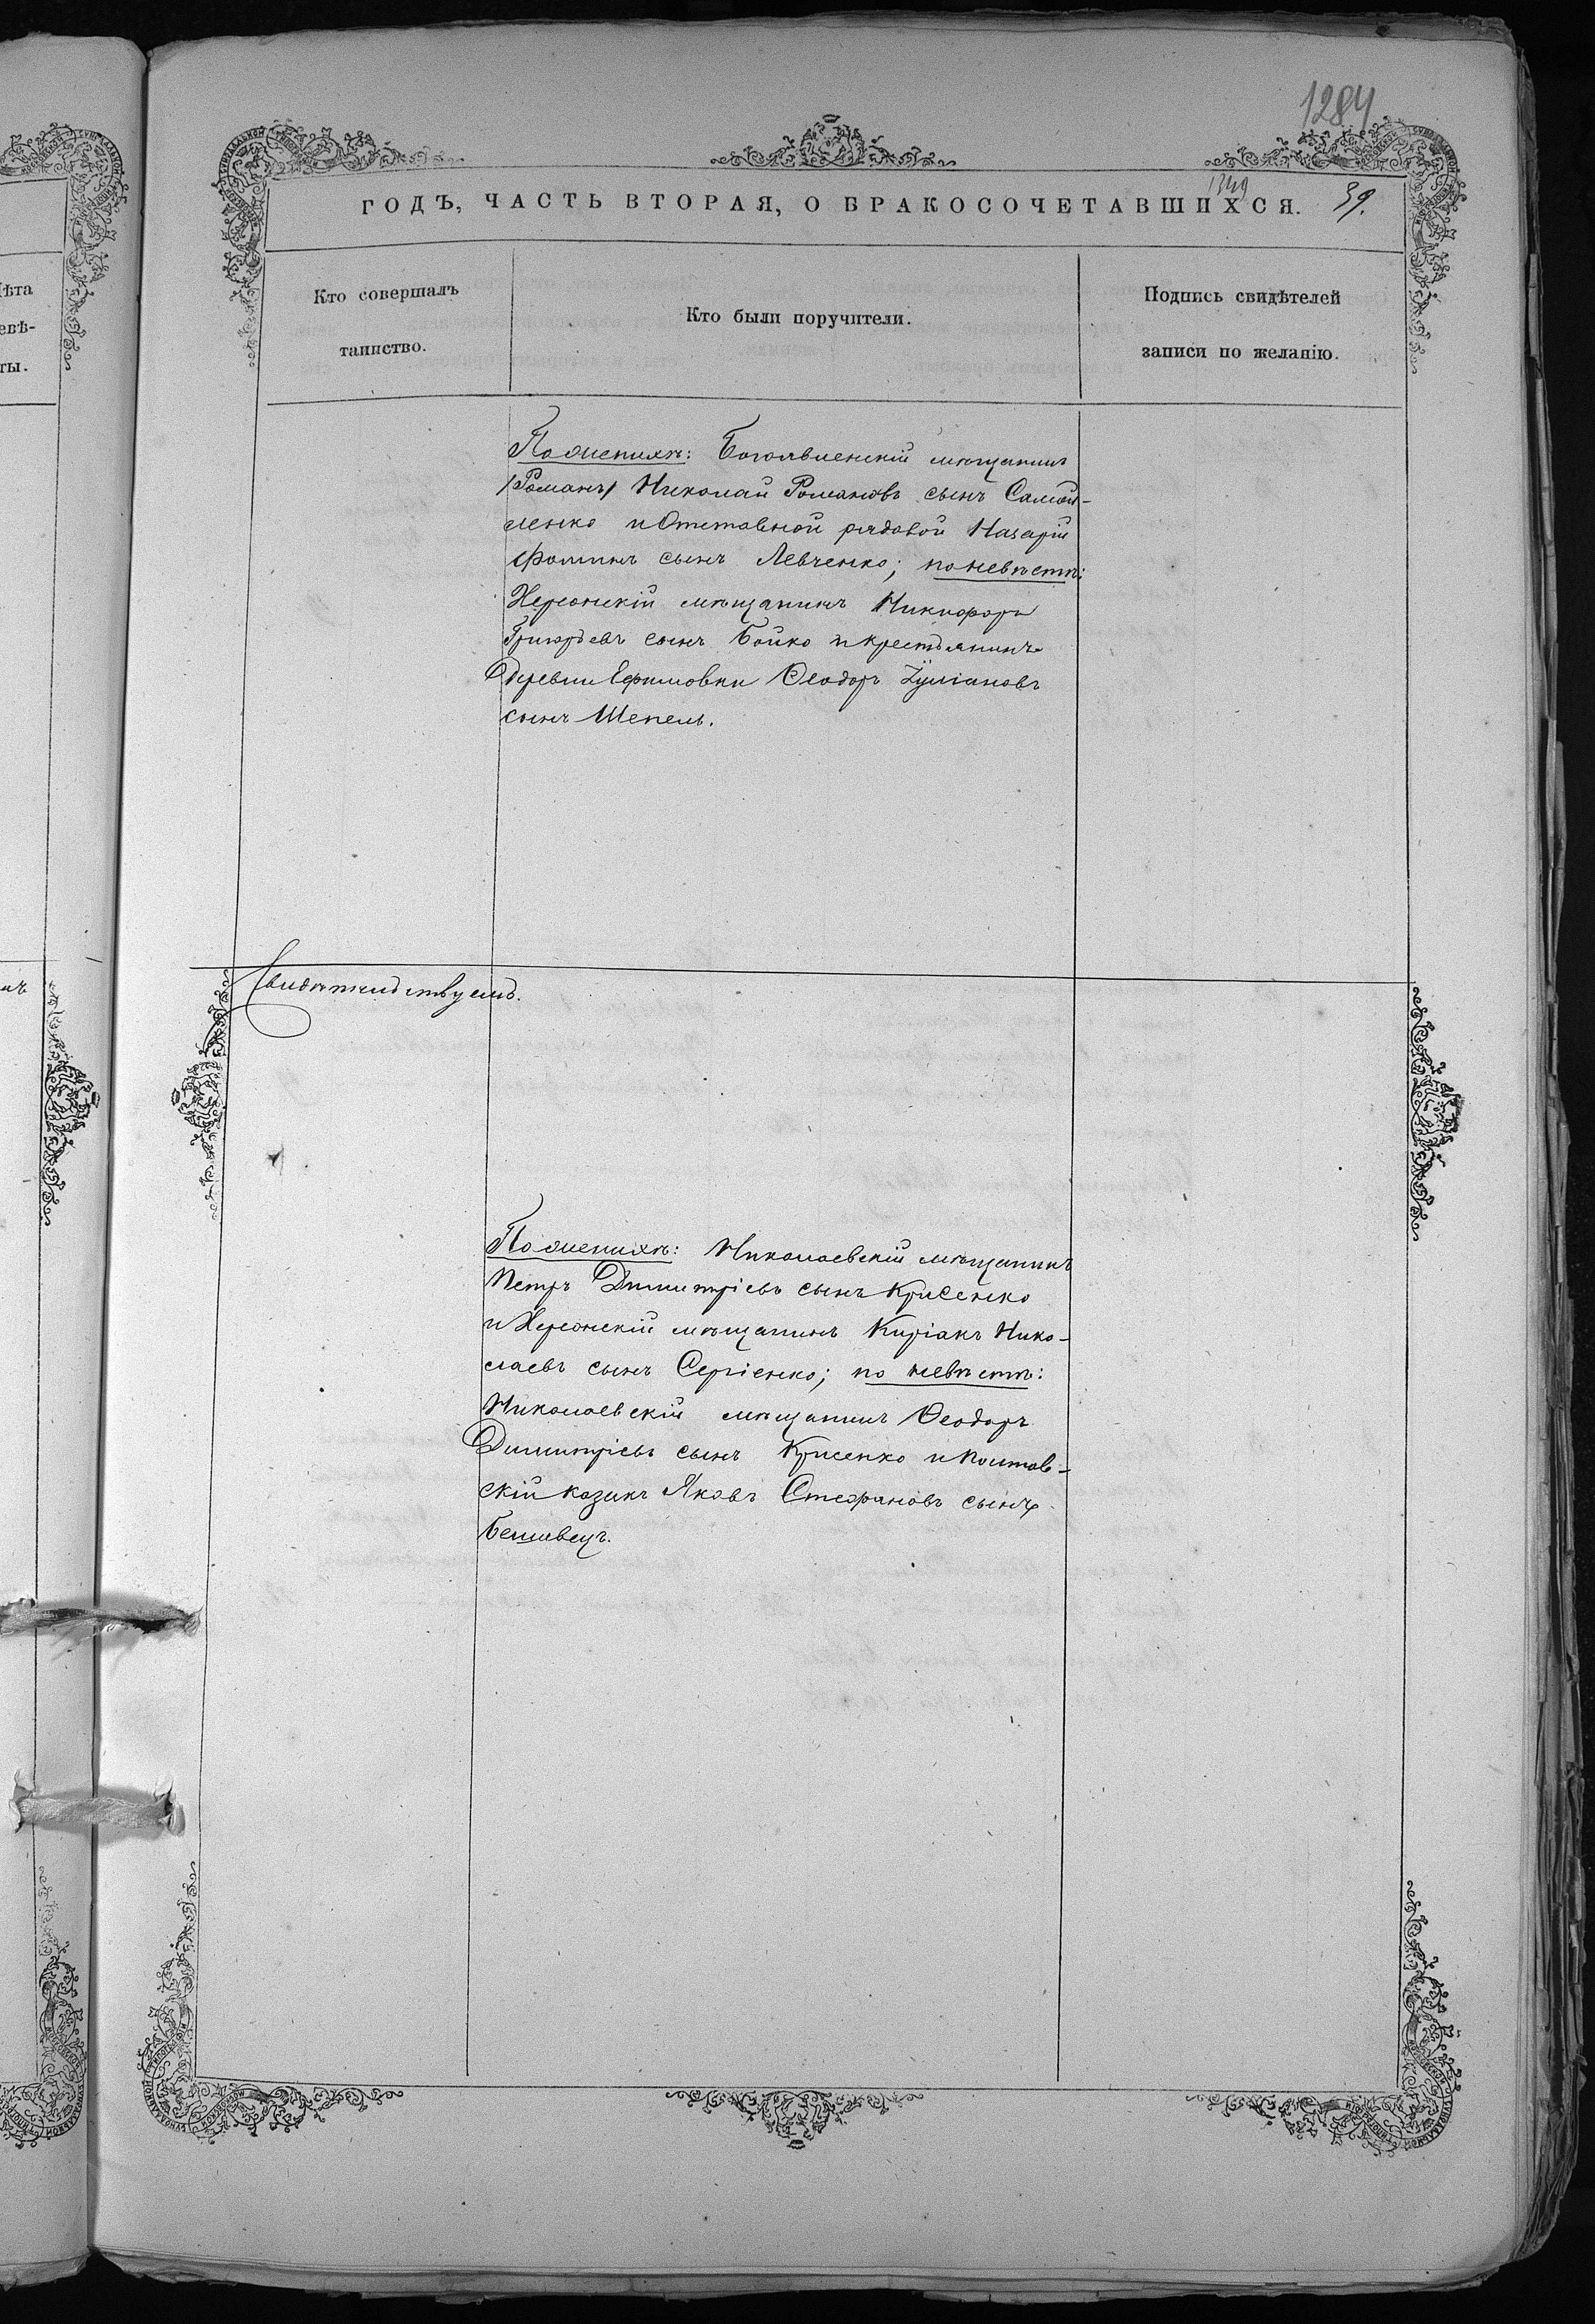 1284
1349
ГОДЪ, ЧАСТЬ ВТОРАЯ, О БРАКОСОЧЕТАВШИХСЯ. 39.
Кто совершалъ
таинство.
Кто были поручители.
Подпись свидѣтелей
записи по желанію.
По женихѣ: Богоявленскій мѣщанинъ
/Романъ/ Николай Романовъ сынъ Самой-
ленко и Отставной рядовой Назарій
Фоминъ сынъ Левченко; по невѣстѣ:
Херсонскій мѣщанинъ Никифоръ
Григорьевъ сынъ Бойко и крестьянинъ
Деревни Ефимовки Ѳеодоръ Іуліановъ
сынъ Шепель.
Свидѣтельствуемъ.
По женихѣ: Николаевскій мѣщанинъ
Петръ Димитріевъ сынъ Крисенко
и Херсонскій мѣщанинъ Киріакъ Нико-
лаевъ сынъ Сергіенко; по невѣстѣ:
Николаевскій мѣщанинъ Ѳеодоръ
Димитріевъ сынъ Крисенко и Полтав-
скій казакъ Яковъ Стефановъ сынъ